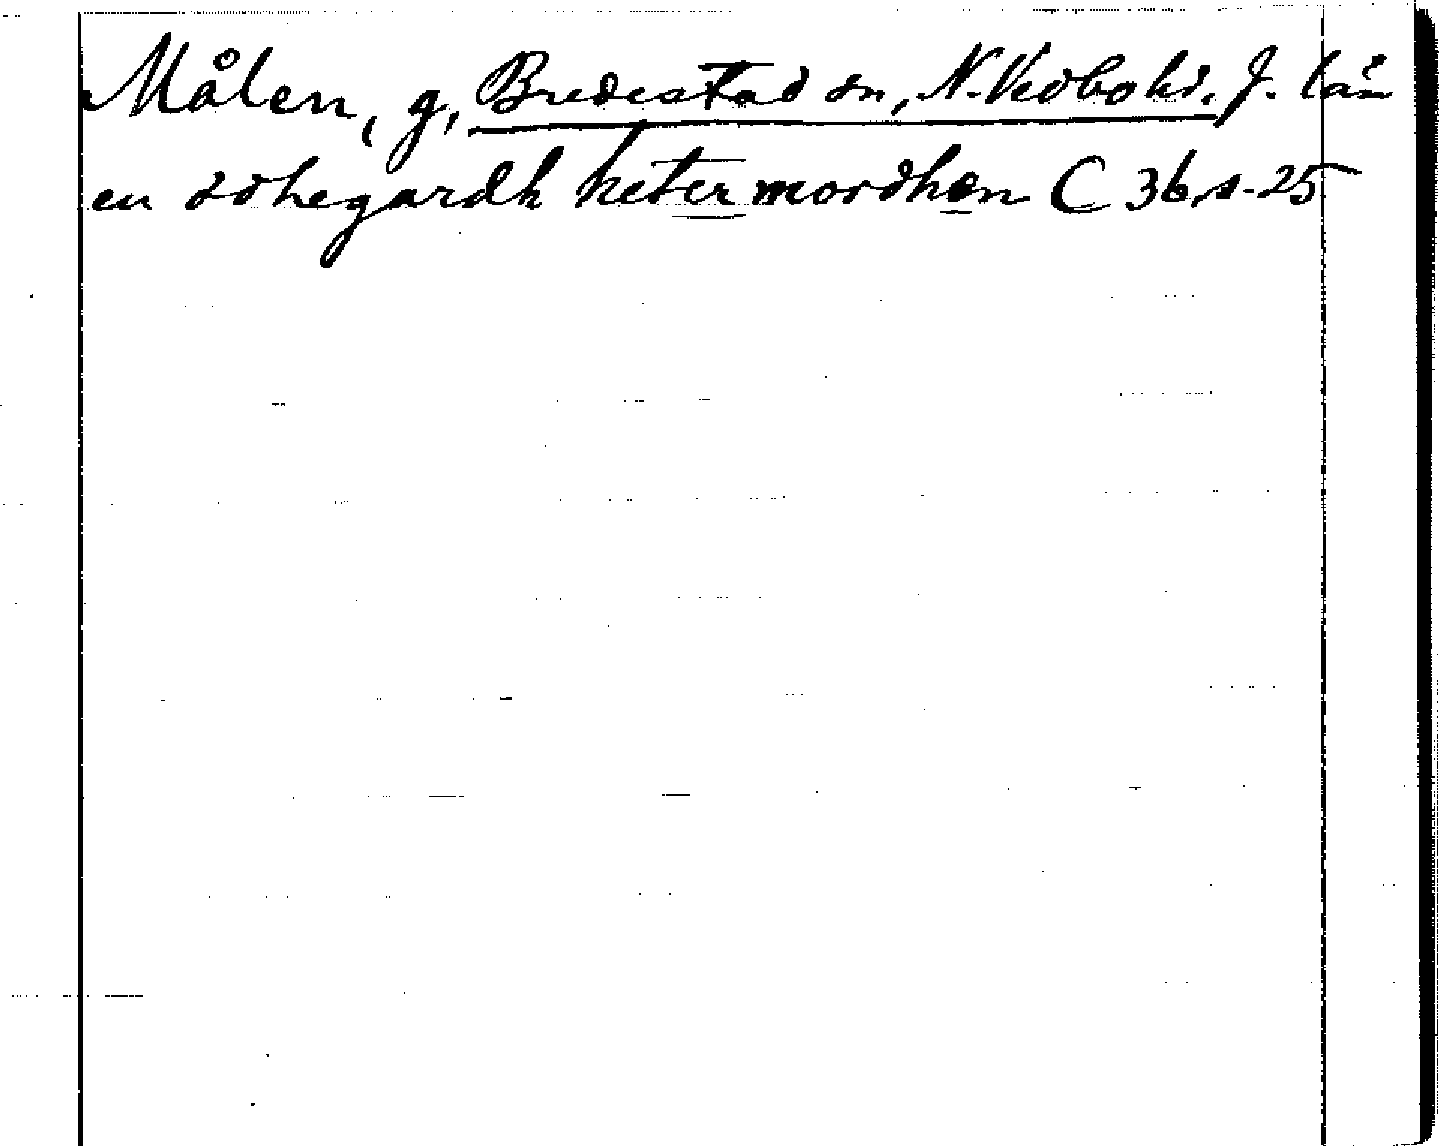 Målen, g, Bredestad sn, N. Vedbo hd. J. län
en ödhegardh heter mordhen C 36, s. 25